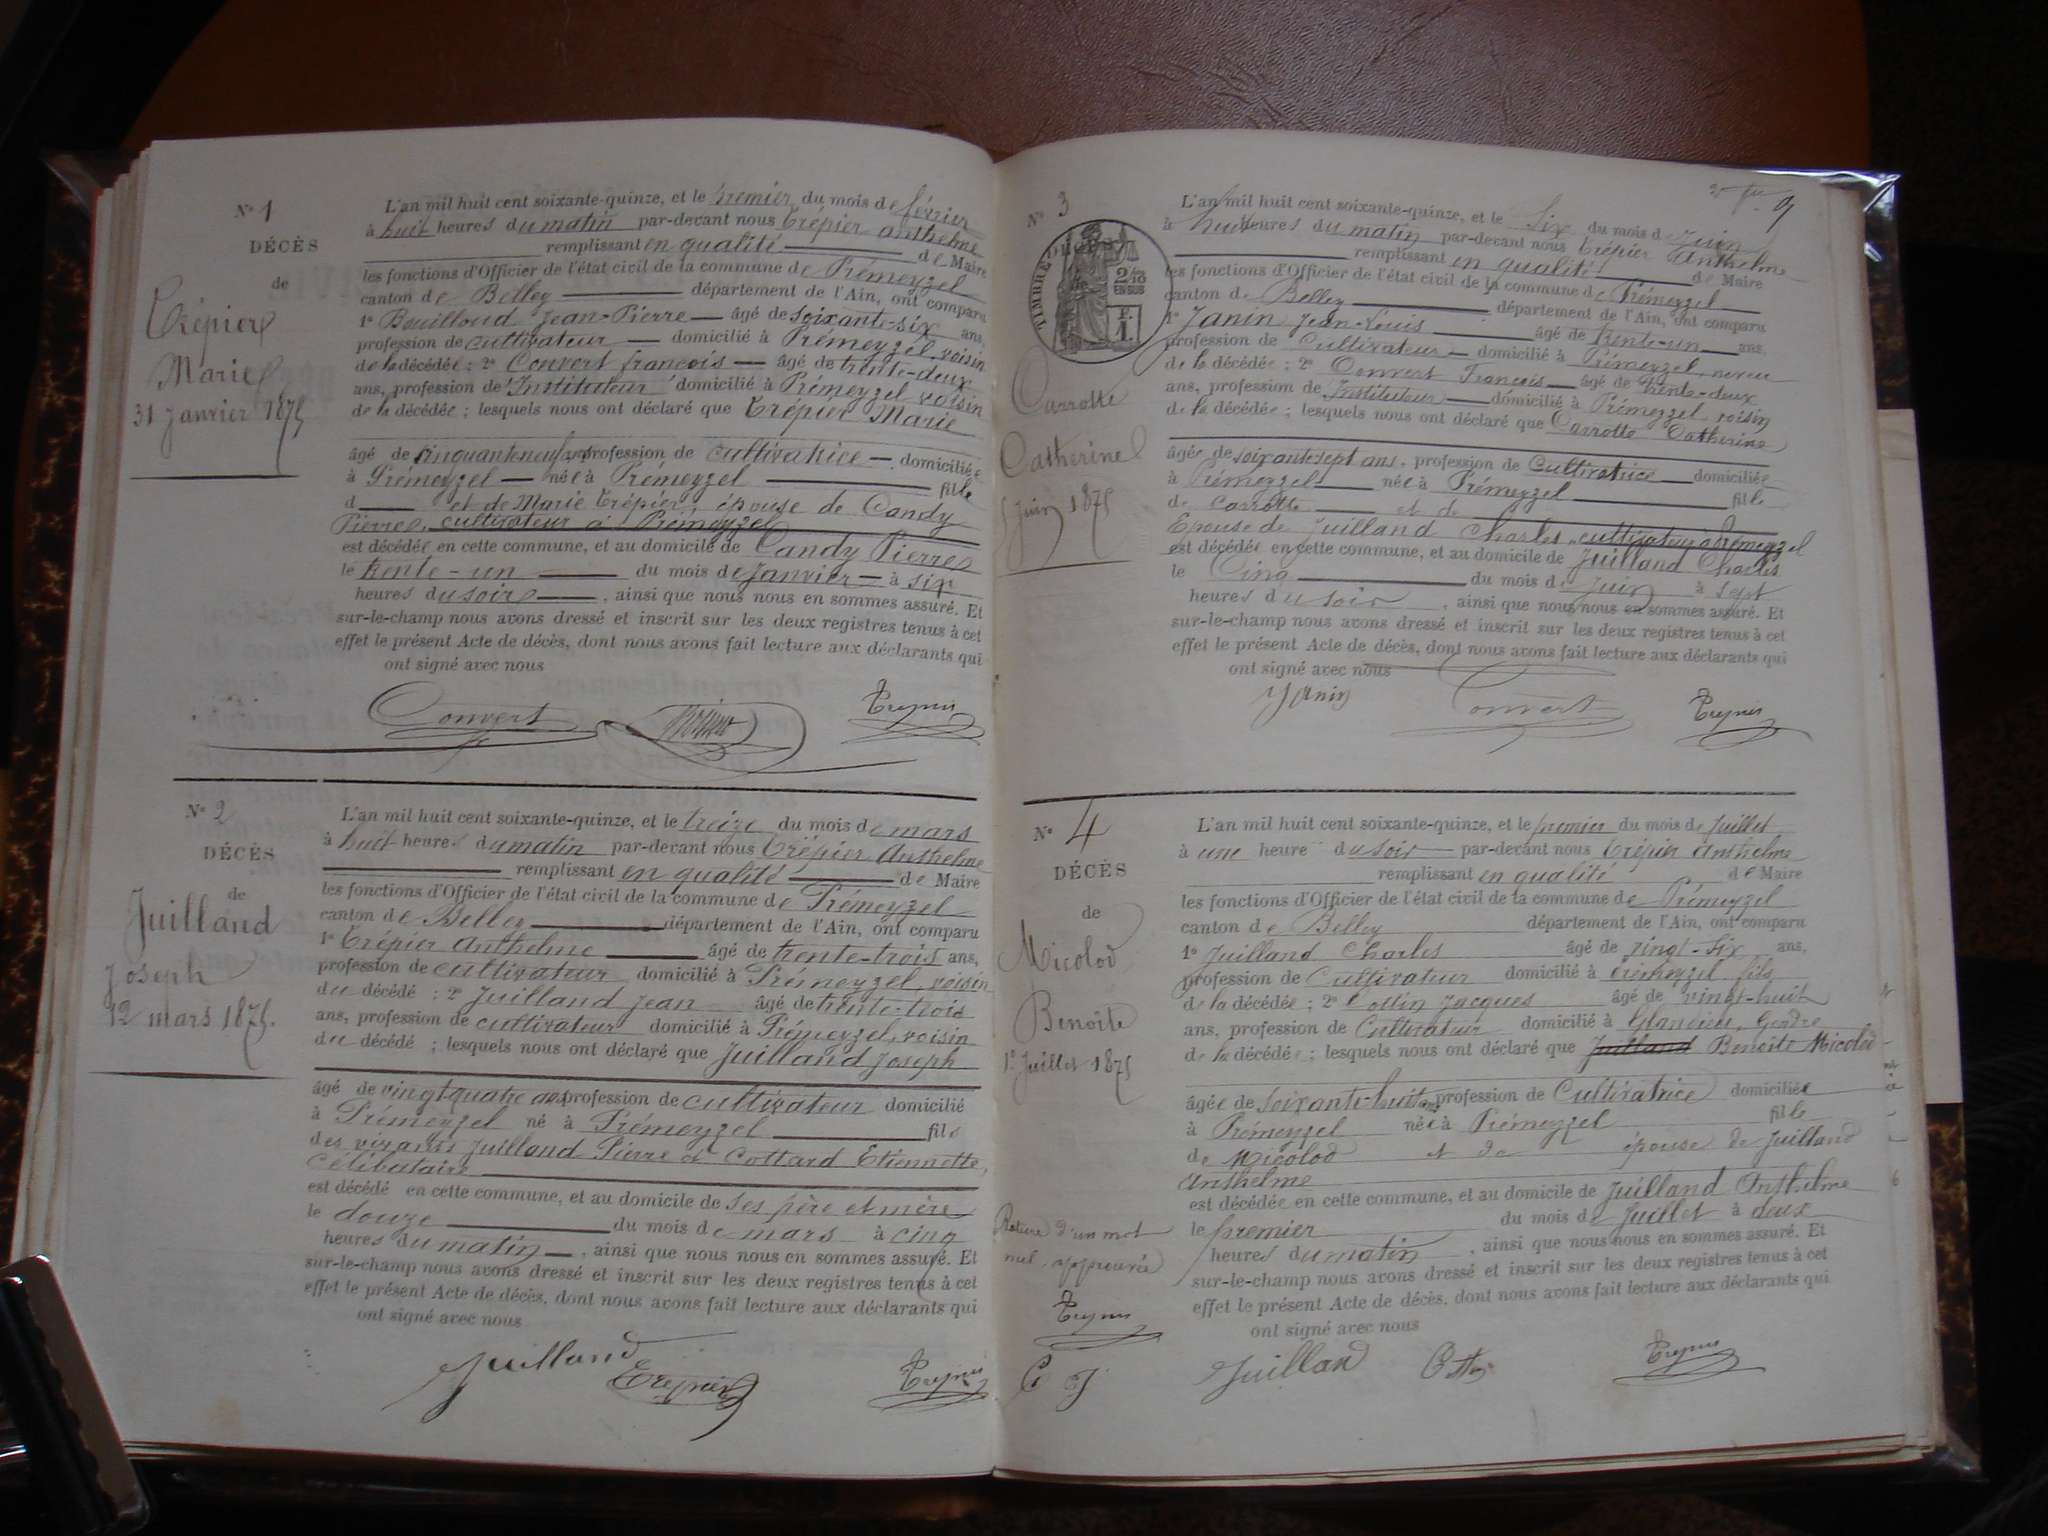 N° 1
DÉCÈS
de
Trépier
Marie
31 Janvier 1875
L'an mil huit cent soixante-quinze, et le premier du mois de février
à huit heures du matin par-devant nous Trépier Anthelme
remplissant en qualité de Maire
les fonctions d'Officier de l'état civil de la commune de Prémeyzel
canton de Belley département de l'Ain, ont comparu
1° Bouilloud Jean-Pierre âgé de soixante-six ans,
profession de cultivateur domicilié à Prémeyzel, voisin
de la décédée ; 2° Convert françois âgé de trente-deux
ans, profession de Instituteur domicilié à Prémeyzel voisin
de la décédée ; lesquels nous ont déclaré que Trépier Marie
âgé de cinquante neuf ans profession de cultivatrice domiciliée
à Prémeyzel née à Prémeyzel fille
d et de Marie Trépier, épouse de Candy
Pierre, cultivateur à Prémeyzel
est décédée en cette commune, et au domicile de Candy Pierre
le trente-un du mois de Janvier à six
heures du soir, ainsi que nous nous en sommes assuré. Et
sur-le-champ nous avons dressé et inscrit sur les deux registres tenus à cet
effet le présent Acte de décès, dont nous avons fait lecture aux déclarants qui
ont signé avec nous
Convert Trépier
N° 2
DÉCÈS
de
Juilland
Joseph
12 mars 1875.
L'an mil huit cent soixante-quinze, et le treize du mois de mars
à huit heures du matin par-devant nous Trépier Anthelme
remplissant en qualité de Maire
les fonctions d'Officier de l'état civil de la commune de Prémeyzel
canton de Belley département de l'Ain, ont comparu
1° Trépier Anthelme âgé de trente-trois ans,
profession de cultivateur domicilié à Prémeyzel, voisin
du décédé ; 2° Juilland Jean âgé de trente-trois
ans, profession de cultivateur domicilié à Prémeyzel, voisin
du décédé ; lesquels nous ont déclaré que Juilland Joseph
âgé de vingt quatre ans profession de cultivateur domicilié
à Prémeyzel né à Prémeyzel fils
des vivants Juilland Pierre et Cottard Etiennette,
célibataire
est décédé en cette commune, et au domicile de ses père et mère
le douze du mois de mars à cinq
heures du matin, ainsi que nous nous en sommes assuré. Et
sur-le-champ nous avons dressé et inscrit sur les deux registres tenus à cet
effet le présent Acte de décès, dont nous avons fait lecture aux déclarants qui
ont signé avec nous
Juilland Trépier Trépier
9
N° 3
TIMBRE
2/10
EN SUS
Carrotte
Catherine
5 Juin 1875
L'an mil huit cent soixante-quinze, et le six du mois de Juin
à huit heures du matin par-devant nous Trépier Anthelme
remplissant en qualité de Maire
les fonctions d'Officier de l'état civil de la commune de Prémeyzel
canton de Belley département de l'Ain, ont comparu
1° Janin Jean-Louis âgé de trente-un ans,
profession de Cultivateur domicilié à Prémeyzel, neveu
de la décédée ; 2° Convert François âgé de trente-deux
ans, profession de Instituteur domicilié à Prémeyzel, voisin
de la décédée ; lesquels nous ont déclaré que Carrotte Catherine
âgée de soixante-sept ans, profession de Cultivatrice domiciliée
à Prémeyzel née à Prémeyzel fille
de Carrotte et de
Epouse de Juilland Charles, cultivateur à Prémeyzel
est décédée en cette commune, et au domicile de Juilland Charles
le Cinq du mois de Juin à sept
heures du soir, ainsi que nous nous en sommes assuré. Et
sur-le-champ nous avons dressé et inscrit sur les deux registres tenus à cet
effet le présent Acte de décès, dont nous avons fait lecture aux déclarants qui
ont signé avec nous
Janin Convert Trépier
N° 4
DÉCÈS
de
Micolod
Benoîte
1er Juillet 1875
L'an mil huit cent soixante-quinze, et le premier du mois de Juillet
à une heure du soir par-devant nous Trépier Anthelme
remplissant en qualité de Maire
les fonctions d'Officier de l'état civil de la commune de Prémeyzel
canton de Belley département de l'Ain, ont comparu
1° Juilland Charles âgé de vingt-six ans,
profession de Cultivateur domicilié à Prémeyzel, fils
de la décédée ; 2° Cottin Jacques âgé de vingt-huit
ans, profession de Cultivateur domicilié à Glandieu, Gendre
de la décédée ; lesquels nous ont déclaré que Juilland Benoîte Micolod
âgée de soixante-huit ans profession de Cultivatrice domiciliée
à Prémeyzel née à Prémeyzel fille
de Micolod et de épouse de Juilland
Anthelme
est décédée en cette commune, et au domicile de Juilland Anthelme
le premier du mois de Juillet à deux
heures du matin, ainsi que nous nous en sommes assuré. Et
sur-le-champ nous avons dressé et inscrit sur les deux registres tenus à cet
effet le présent Acte de décès, dont nous avons fait lecture aux déclarants qui
ont signé avec nous
Rature d'un mot
nul, approuvée
Trépier
C J
Juilland Cottin Trépier